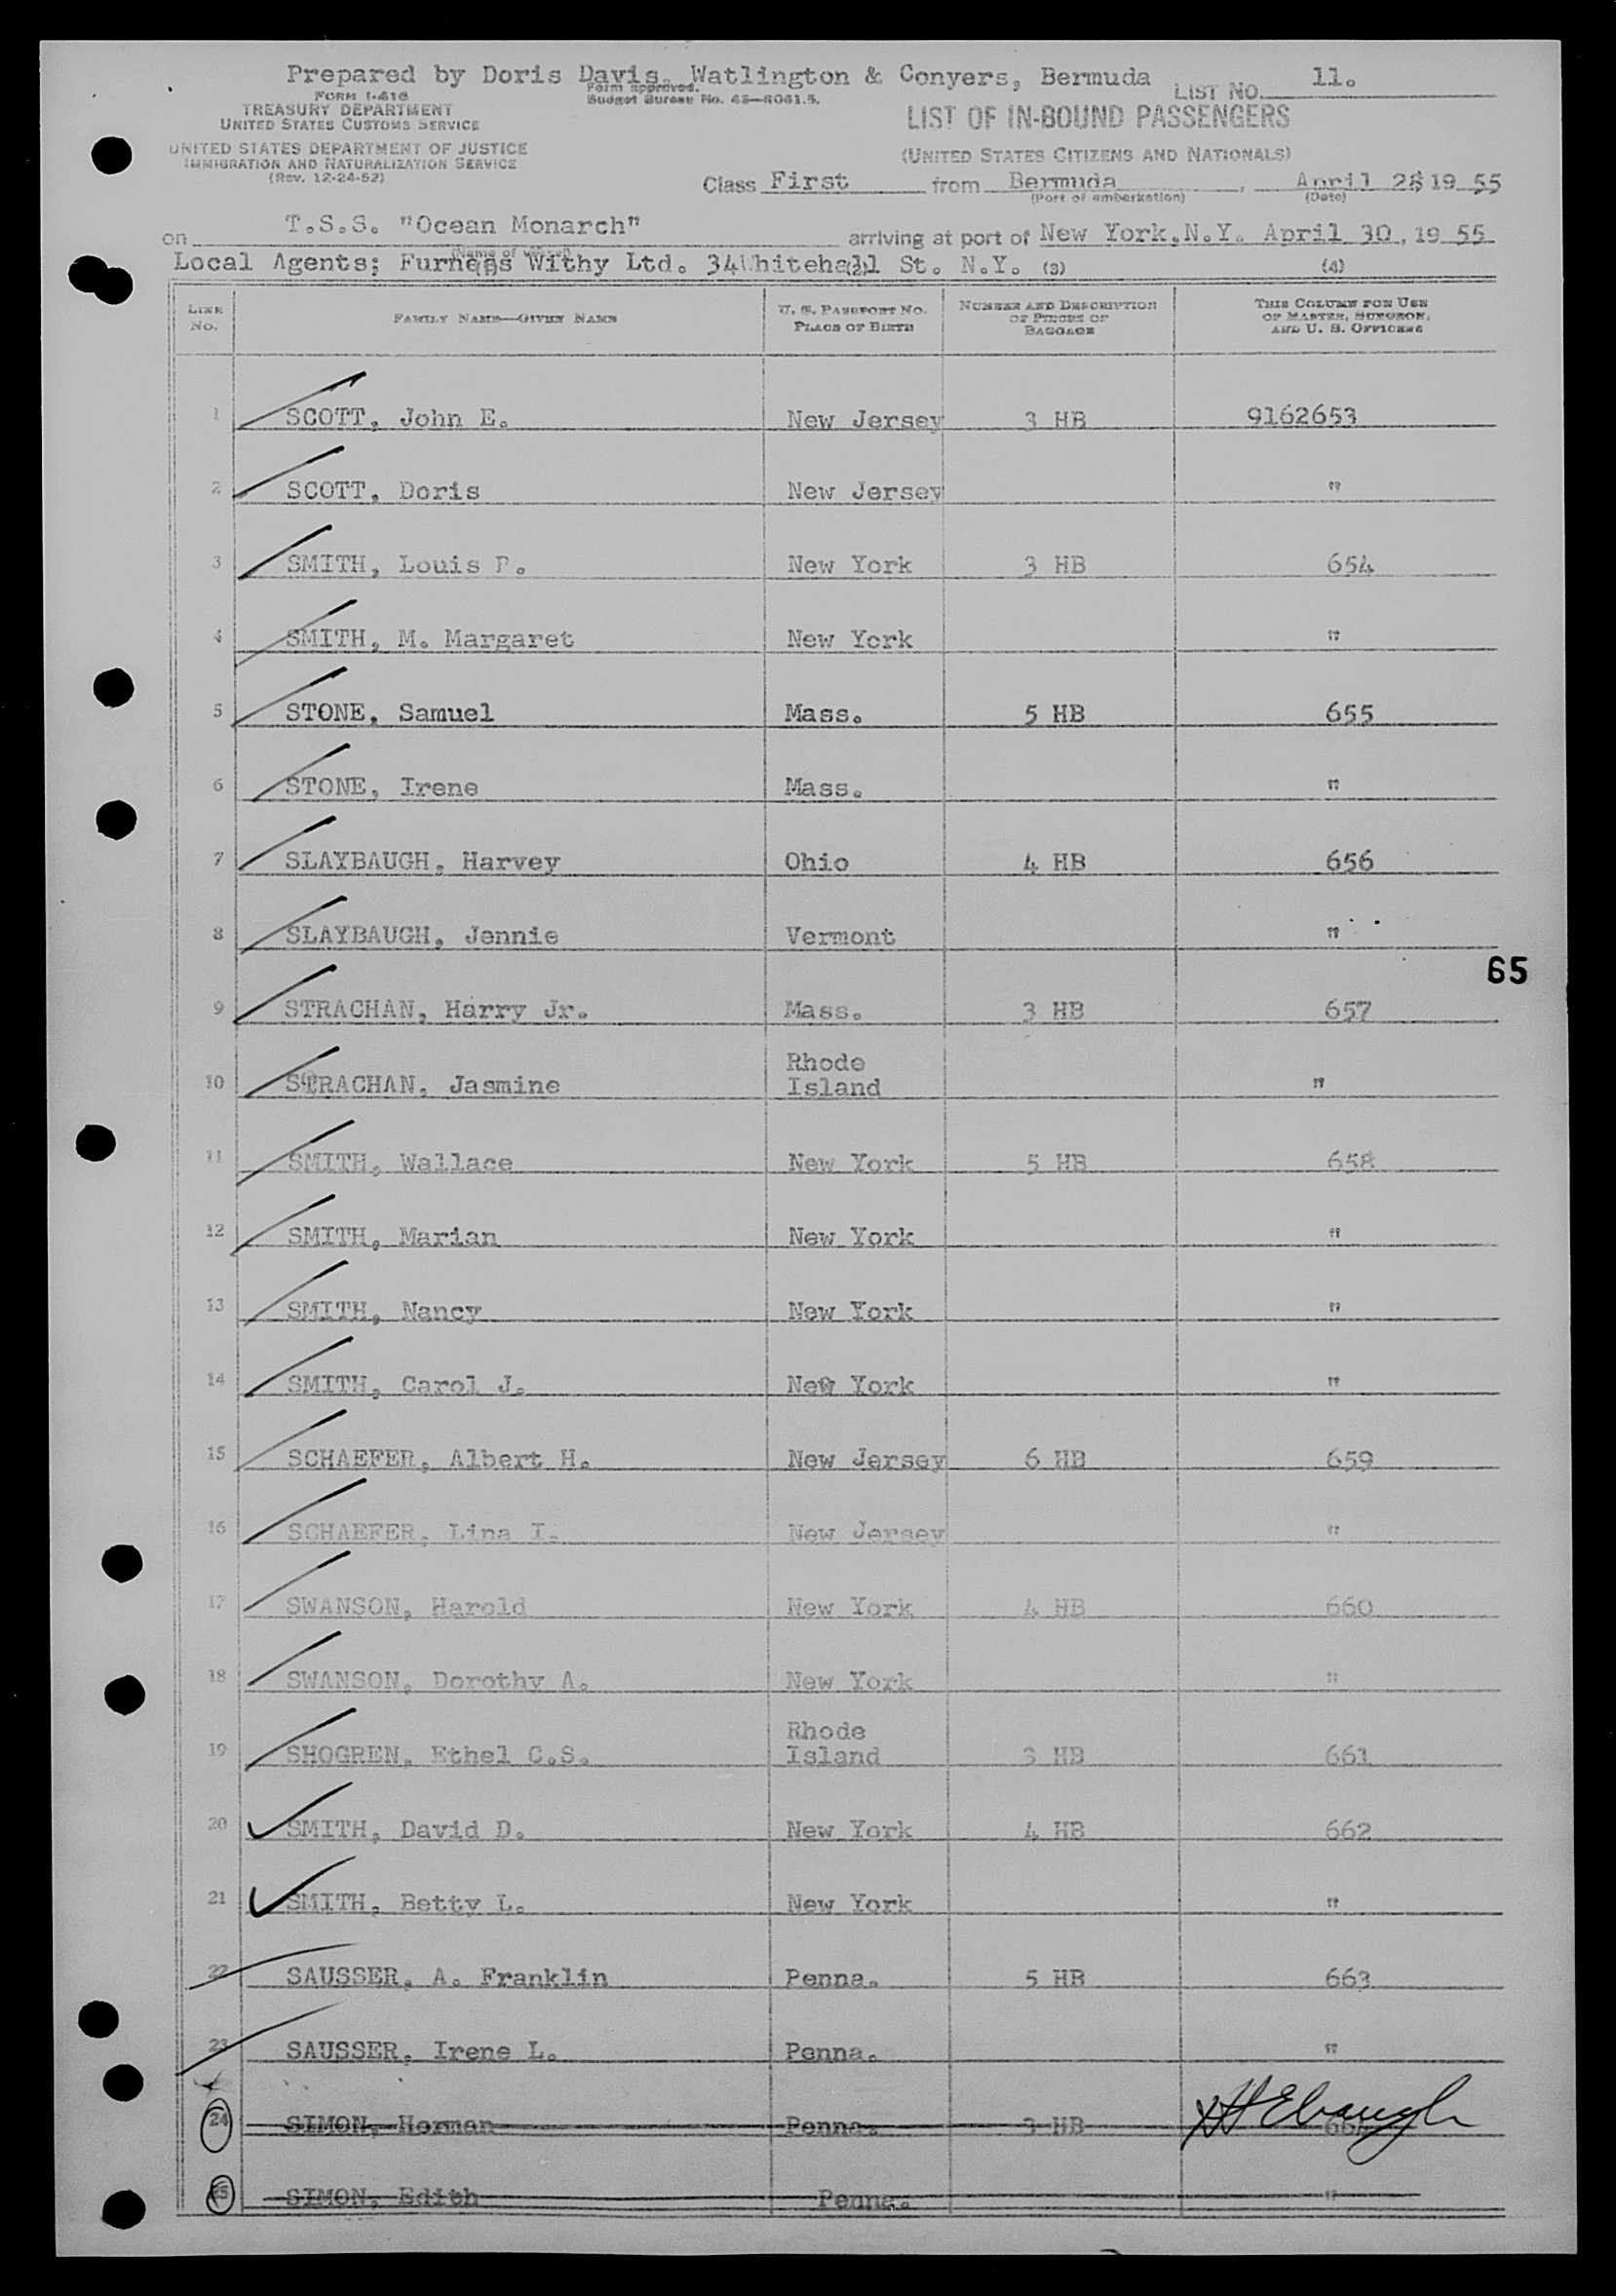 Prepared by Doris Davis, Watlington & Conyers, Bermuda LIST NO. 11.
FORM I-416
Form approved.
TREASURY DEPARTMENT
Budget Bureau No. 43—R061.5.
UNITED STATES CUSTOMS SERVICE
LIST OF IN-BOUND PASSENGERS
UNITED STATES DEPARTMENT OF JUSTICE
IMMIGRATION AND NATURALIZATION SERVICE
(UNITED STATES CITIZENS AND NATIONALS)
(Rev. 12-24-52)
Class First from Bermuda, April 28 19 55
(Port of embarkation) (Date)
on T.S.S. "Ocean Monarch" arriving at port of New York, N.Y. April 30, 19 55
(Name of vessel)
Local Agents; Furness Withy Ltd. 34 Whitehall St. N.Y.
(1) (2) (3) (4)
LINE No. FAMILY NAME—GIVEN NAME U. S. PASSPORT NO. PLACE OF BIRTH NUMBER AND DESCRIPTION OF PIECES OF BAGGAGE THIS COLUMN FOR USE OF MASTER, SURGEON, AND U. S. OFFICERS
1 SCOTT, John E. New Jersey 3 HB 9162653
2 SCOTT, Doris New Jersey "
3 SMITH, Louis P. New York 3 HB 654
4 SMITH, M. Margaret New York "
5 STONE, Samuel Mass. 5 HB 655
6 STONE, Irene Mass. "
7 SLAYBAUGH, Harvey Ohio 4 HB 656
8 SLAYBAUGH, Jennie Vermont "
65
9 STRACHAN, Harry Jr. Mass. 3 HB 657
10 STRACHAN, Jasmine Rhode Island "
11 SMITH, Wallace New York 5 HB 658
12 SMITH, Marian New York "
13 SMITH, Nancy New York "
14 SMITH, Carol J. New York "
15 SCHAEFER, Albert H. New Jersey 6 HB 659
16 SCHAEFER, Lina I. New Jersey "
17 SWANSON, Harold New York 4 HB 660
18 SWANSON, Dorothy A. New York "
19 SHOGREN, Ethel C.S. Rhode Island 3 HB 661
20 SMITH, David D. New York 4 HB 662
21 SMITH, Betty L. New York "
22 SAUSSER, A. Franklin Penna. 5 HB 663
23 SAUSSER, Irene L. Penna. "
24 SIMON, Herman Penna. 3 HB 664
25 SIMON, Edith Penna. "